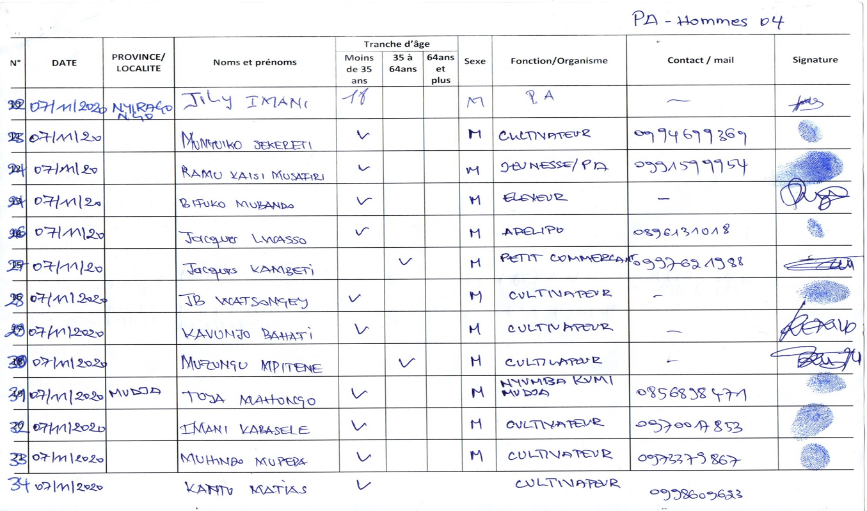 PA - Hommes 04
N° DATE PROVINCE/ LOCALITE Noms et prénoms Tranche d'âge Moins de 35 ans 35 à 64ans 64ans et plus Sexe Fonction/Organisme Contact / mail Signature
22 07/11/2020 NYIRAGONGO Jily IMANI 18 M PA —
23 07/11/20 MUNYUIKO SEKERETI ✓ M CULTIVATEUR 0994699369
24 07/11/20 RAMU KAISI MUSAFIRI ✓ M JEUNESSE/PA 0991599954
07/11/20 BIFUKO MUBANDO ✓ M ELEVEUR —
26 07/11/20 Jacques LWASSO ✓ M APELIPO 0896131018
27 07/11/20 Jacques KAMBETI ✓ M PETIT COMMERCANT 0997621988
28 07/11/2020 JB WATSONGEY ✓ M CULTIVATEUR —
29 07/11/2020 KAVUNJO BAHATI ✓ M CULTIVATEUR —
30 07/11/2020 MUZUNGU MPITENE ✓ M CULTIVATEUR —
31 07/11/2020 MUDJA TOJA MAHONGO ✓ M NYUMBA KUMI MUDJA 0856898471
32 07/11/2020 IMANI KABASELE ✓ M CULTIVATEUR 0970017853
33 07/11/2020 MUHINDO MUPEPA ✓ M CULTIVATEUR 0973379867
34 07/11/2020 KANTU MATIAS ✓ CULTIVATEUR 0998609623